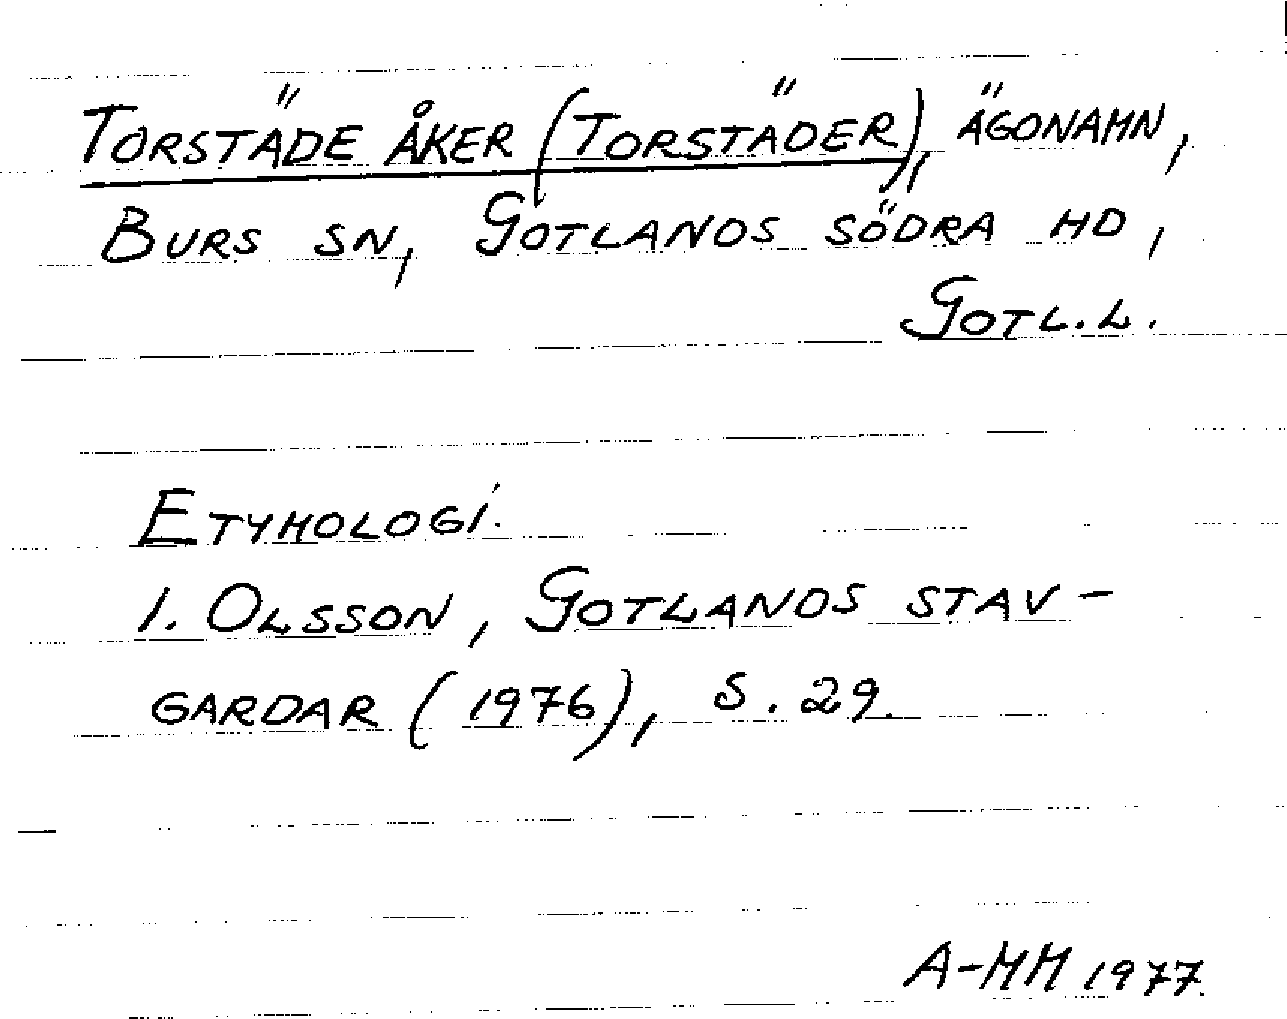 TORSTÄDE ÅKER (TORSTÄDER), ÄGONAMN,
BURS SN, GOTLANDS SÖDRA HD,
GOTL.L.
ETYMOLOGI.
I. OLSSON, GOTLANDS STAV-
GARDAR (1976), S. 29.
A-MM 1977.